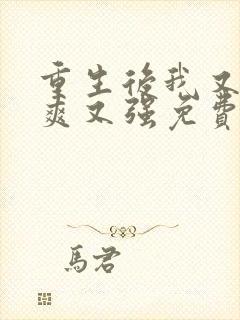 重生後我又
爽又強免費
馬君